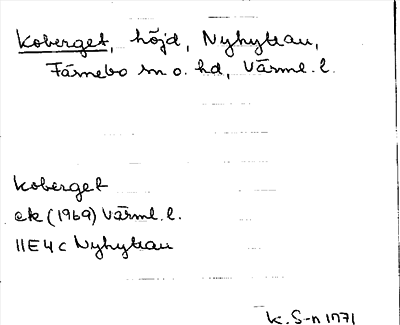 Koberget, höjd, Nyhyttan,
Färnebo sn o. hd, Värml. l.
Koberget
ek (1969) Värml. l.
11E 4c Nyhyttan
K. S-n 1971